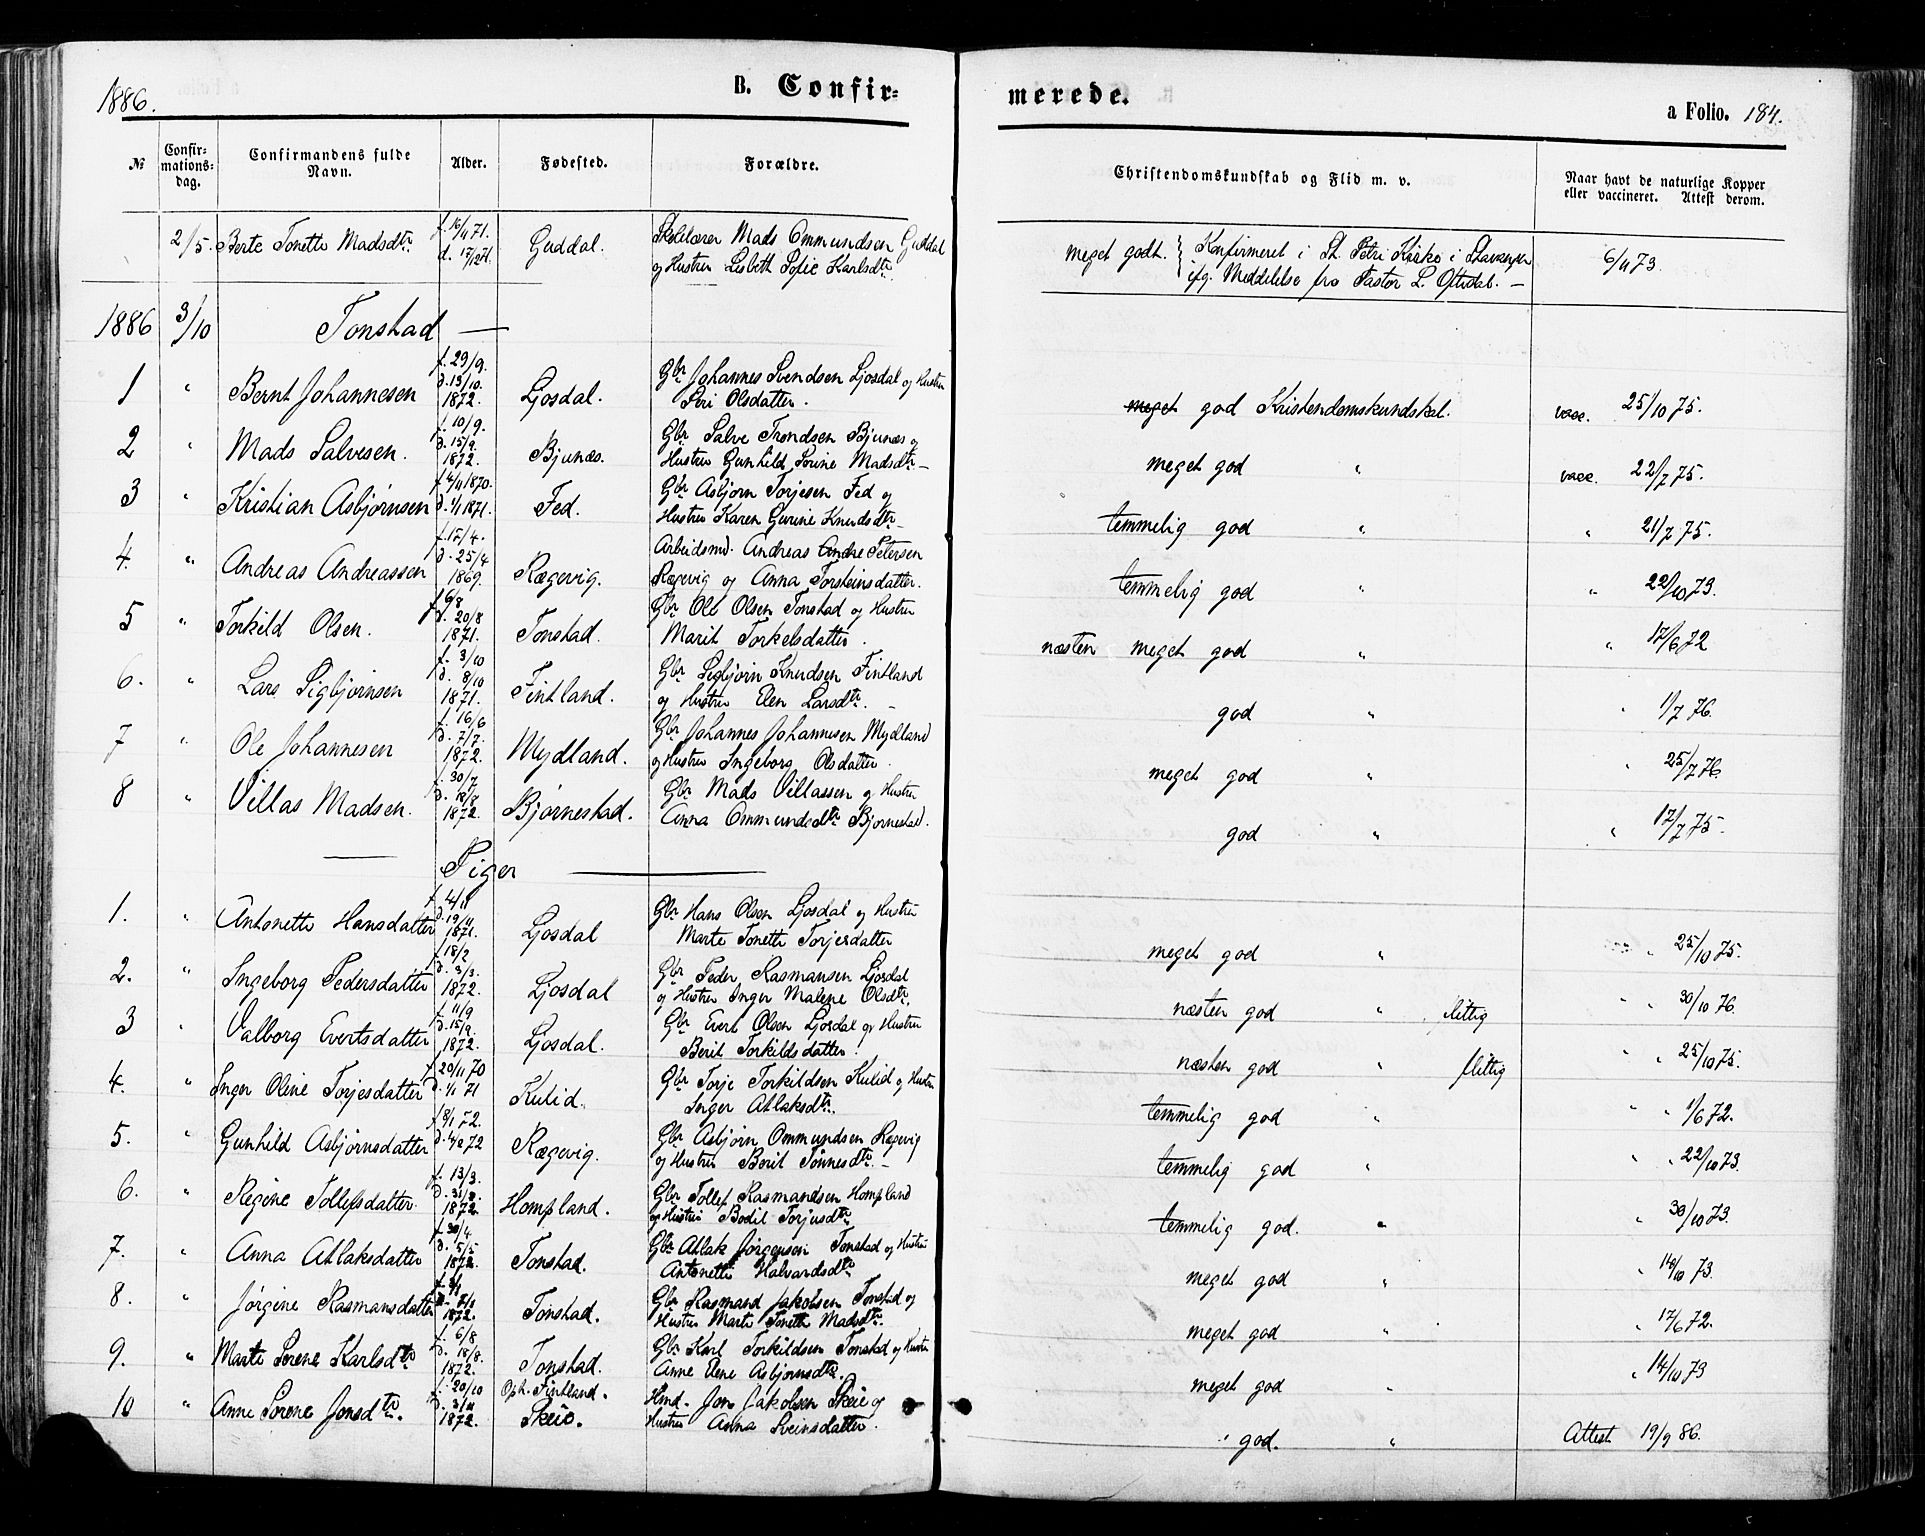 1886.
B. Confir-
merede.
a Folio. 184.
№
Confir-
mations-
dag.
Confirmandens fulde
Navn.
Alder.
Fødested.
Forældre.
Christendomskundskab og Flid m. v.
Naar havt de naturlige Kopper
eller vaccineret. Attest derom.
2/5. Berte Tonette Madsdtr f. 16/11 71. Guddal. Skolelærer Mads Ommundsen Guddal meget godt. Konfirmeret i St. Petri Kirke i Stavanger 6/11 73.
d. 17/12 71. og Hustru Lisbeth Sofie Karlsdtr ifg. Meddelelse fra Pastor L. Oftedal. —
1886 3/10 Tonstad —
1 " Bernt Johannesen f. 29/9. d. 13/10. 1872. Ljosdal. Gbr Johannes Svendsen Ljosdal og Hustru meget god Kristendomskundskab. vacc. 25/10 75.
Siri Olsdatter.
2 " Mads Salvesen. f. 10/9. d. 15/9. 1872. Bjunæs. Gbr Salve Trondsen Bjunæs og meget god " vacc. 22/7 75.
Hustru Gunhild Serine Madsdtr —
3 " Kristian Asbjørnsen f. 4/11 1870. d. 1/1 1871. Fed. Gbr Asbjørn Torjesen Fed og temmelig god " " 21/7 75.
Hustru Karen Gurine Knudsdtr —
4. " Andreas Andreassen f. 17/4. d. 25/4 1869. Rægevig. Arbeidsmd. Andreas Andre Petersen temmelig god " " 22/10 73.
Rægevig og Anna Torsteinsdatter.
5 " Torkild Olsen. f. 6/8 d. 20/8 1871. Tonstad. Gbr Ole Olsen Tonstad og Hustru næsten meget god " " 17/6 72
Marit Torkelsdatter.
6. " Lars Sigbjørnsen f. 3/10 d. 8/10 1871. Fintland. Gbr Sigbjørn Knudsen Fintland god " " 1/7 76.
og Hustru Elen Larsdtr. —
7 " Ole Johannesen f. 16/6 d. 7/7. 1872. Mydland. Gbr Johannes Johannesen Mydland meget god " " 25/7 76
og Hustru Ingeborg Olsdatter.
8 " Villas Madsen. f. 30/7 d. 18/8 1872. Bjørnestad. Gbr Mads Villassen og Hustru god " " 17/7 75.
Anna Ommundsdtr Bjørnestad.
Piger
1. " Antonette Hansdatter f. 4/11 d. 19/11 1871. Ljosdal Gbr Hans Olsen Ljosdal og Hustru meget god " " 25/10 75.
Marte Tonette Torjesdatter
2. " Ingeborg Pedersdatter f. 18/2 d. 3/3. 1872. Ljosdal Gbr Peder Rasmansen Ljosdal næsten god " flittig " " 30/10 76.
og Hustru Inger Malene Olsdtr.
3 " Valborg Evertsdatter f. 11/9 d. 15/9. 1872. Ljosdal. Gbr Evert Olsen Ljosdal og Hustru næsten god " flittig " " 25/10 75.
Berit Torkildsdatter.
4. " Inger Oline Torjesdatter f. 20/11 70 d. 1/1 71 Kulid. Gbr Torje Torkildsen Kulid og Hustru temmelig god " " " 1/6 72.
Inger Atlaksdtr.
5. " Gunhild Asbjørnsdatter f. 8/1 72. d. 4/2 72 Rægevig. Gbr Asbjørn Ommundsen Rægevig temmelig god " " " 22/10 73.
og Hustru Berit Tønnesdtr. —
6. " Regine Tollefsdatter. f. 13/3. d. 31/3. 1872. Hompland. Gbr Tollef Rasmandsen Hompland temmelig god. " " 30/10 73.
og Hustru Bodil Torjusdtr
7. " Anna Atlaksdatter f. 30/4 d. 5/5 1872. Tonstad. Gbr Atlak Jørgensen Tonstad og Hustru meget god " " 14/10 73.
Antonette Halvardsdtr
8. " Jørgine Rasmansdatter 1872. Tonstad. Gbr Rasmand Jakobsen Tonstad og meget god " " 17/6 72.
Hustru Marte Tonette Madsdtr.
9. " Marte Serene Karlsdtr f. 6/8 d. 18/8. 1872. Tonstad. Gbr Karl Torkildsen Tonstad og Hustru meget god " " 14/10 73
Anne Elene Asbjørnsdtr.
10 " Anne Serene Jonsdtr. f. 20/10 d. 3/11 1872. Oph. Fintland. Skeie. Hmd. Jon Jakobsen Skeie og god. " Attest 19/9 86.
Hustru Anna Sveinsdatter.